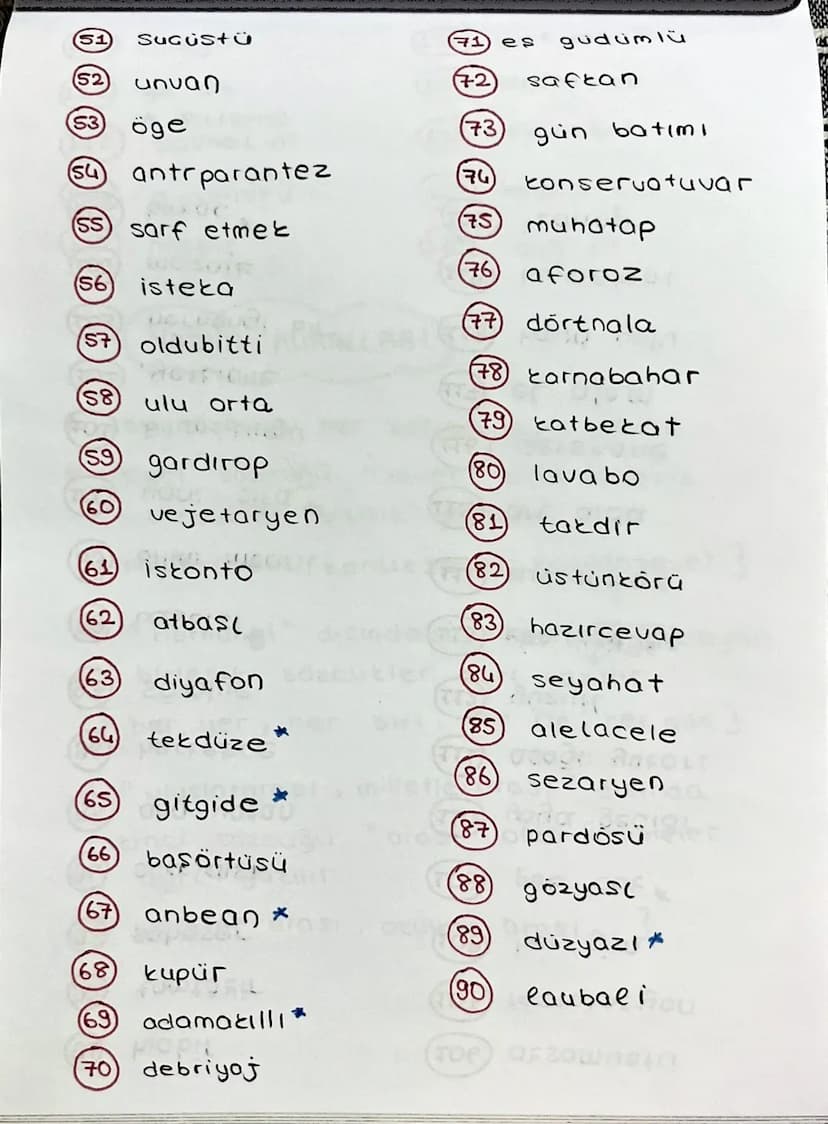 51 suçüstü
52 unvan
53 öge
54 antrparantez
55 sarf etmek
56 isteka
57 oldubitti
58 ulu orta
59 gardırop
60 vejetaryen
61 iskonto
62 atbaşı
63 diyafon
64 tekdüze *
65 gitgide *
66 başörtüsü
67 anbean *
68 kupür
69 adamakıllı *
70 debriyaj
71 eş güdümlü
72 safkan
73 gün batımı
74 konservatuvar
75 muhatap
76 aforoz
77 dörtnala
78 karnabahar
79 katbekat
80 lavabo
81 takdir
82 üstünkörü
83 hazırcevap
84 seyahat
85 alelacele
86 sezaryen
87 pardösü
88 gözyaşı
89 düzyazı *
90 laubali